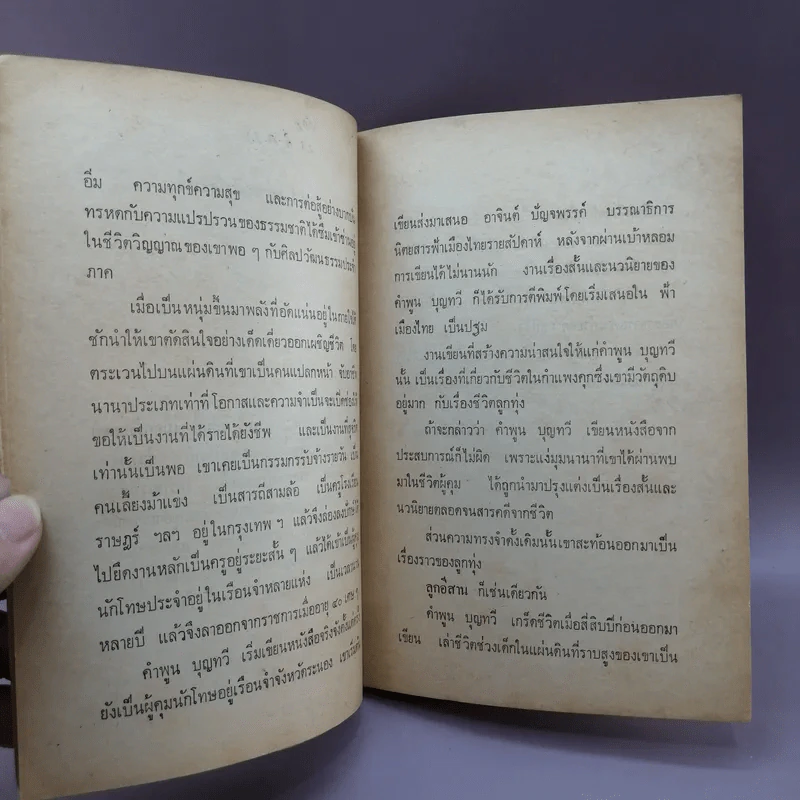 อิ่ม ความทุกข์ความสุข และการต่อสู้อย่าง
ทรหดกับความแปรปรวนของธรรมชาติได้ซึมเข้า
ในชีวิตวิญญาณของเขาพอ ๆ กับศิลปวัฒนธรรมประจำ
ภาค
เมื่อเป็นหนุ่มขึ้นมาพลังที่อัดแน่นอยู่ในกายได้
ชักนำให้เขาตัดสินใจอย่างเด็ดเดี่ยวออกเผชิญชีวิต
ตระเวนไปบนแผ่นดินที่เขาเป็นคนแปลกหน้า
นานาประเภทเท่าที่โอกาสและความจำเป็นจะเปิดช่องให้
ขอให้เป็นงานที่ได้รายได้ยังชีพ และเป็นงานที่สุจริต
เท่านั้นเป็นพอ เขาเคยเป็นกรรมกรรับจ้างรายวัน เป็น
คนเลี้ยงม้าแข่ง เป็นสารถีสามล้อ เป็นครูโรงเรียน
ราษฎร์ ฯลฯ อยู่ในกรุงเทพฯ แล้วจึงล่องลงปักษ์ใต้
ไปยึดงานหลักเป็นครูอยู่ระยะสั้น ๆ แล้วได้เข้าเป็นผู้คุม
นักโทษประจำอยู่ในเรือนจำหลายแห่ง เป็นเวลานาน
หลายปี แล้วจึงลาออกจากราชการเมื่ออายุ ๔๐ เศษ ๆ
คำพูน บุญทวี เริ่มเขียนหนังสือจริงจังตั้งแต่ครั้ง
ยังเป็นผู้คุมนักโทษอยู่เรือนจำจังหวัดระนอง เขาเริ่ม
เขียนส่งมาเสนอ อาจินต์ ปัญจพรรค์ บรรณาธิการ
นิตยสารฟ้าเมืองไทยรายสัปดาห์ หลังจากผ่านเบ้าหลอม
การเขียนได้ไม่นานนัก งานเรื่องสั้นและนวนิยายของ
คำพูน บุญทวี ก็ได้รับการตีพิมพ์โดยเริ่มเสนอใน ฟ้า
เมืองไทย เป็นปฐม
งานเขียนที่สร้างความน่าสนใจให้แก่คำพูน บุญทวี
นั้น เป็นเรื่องที่เกี่ยวกับชีวิตในกำแพงคุกซึ่งเขามีวัตถุดิบ
อยู่มาก กับเรื่องชีวิตลูกทุ่ง
ถ้าจะกล่าวว่า คำพูน บุญทวี เขียนหนังสือจาก
ประสบการณ์ก็ไม่ผิด เพราะแง่มุมนานาที่เขาได้ผ่านพบ
มาในชีวิตผู้คุม ได้ถูกนำมาปรุงแต่งเป็นเรื่องสั้นและ
นวนิยายตลอดจนสารคดีจากชีวิต
ส่วนความทรงจำดั้งเดิมนั้นเขาสะท้อนออกมาเป็น
เรื่องราวของลูกทุ่ง
ลูกอีสาน ก็เช่นเดียวกัน
คำพูน บุญทวี เกร็ดชีวิตเมื่อสี่สิบปีก่อนออกมา
เขียน เล่าชีวิตช่วงเด็กในแผ่นดินที่ราบสูงของเขาเป็น